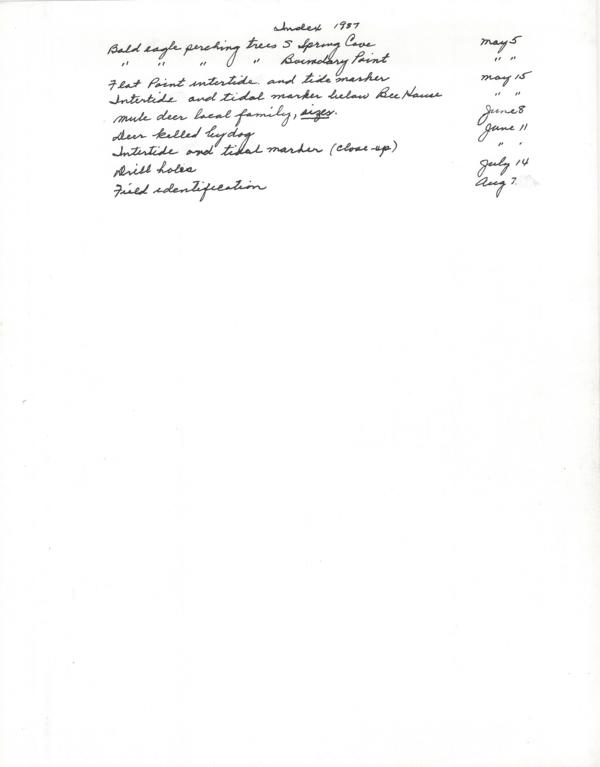 Index 1987
Bald eagle perching trees S Spring Cove May 5
" " " " Boundary Point " "
Flat Point intertide and tide marker May 15
Intertide and tidal marker below Bee House " "
Mule deer local family, sizes. June 8
Deer killed by dog June 11
Intertide and tidal marker (close-up) " "
Drill holes July 14
Field identification Aug 7